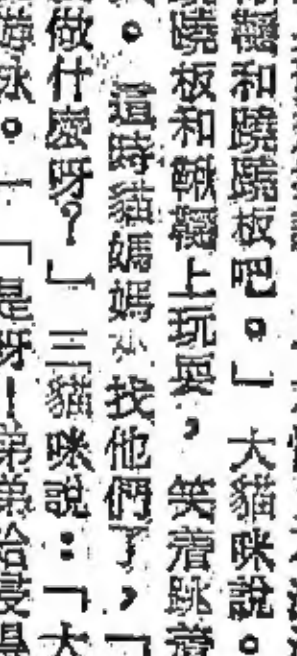 韆和蹺蹺板吧。」大貓咪說。
蹺板和鞦韆上玩耍，笑着跳着
。這時貓媽媽來找他們了，「
做什麼呀？」三貓咪說：「大
游泳。」「是呀！弟弟給